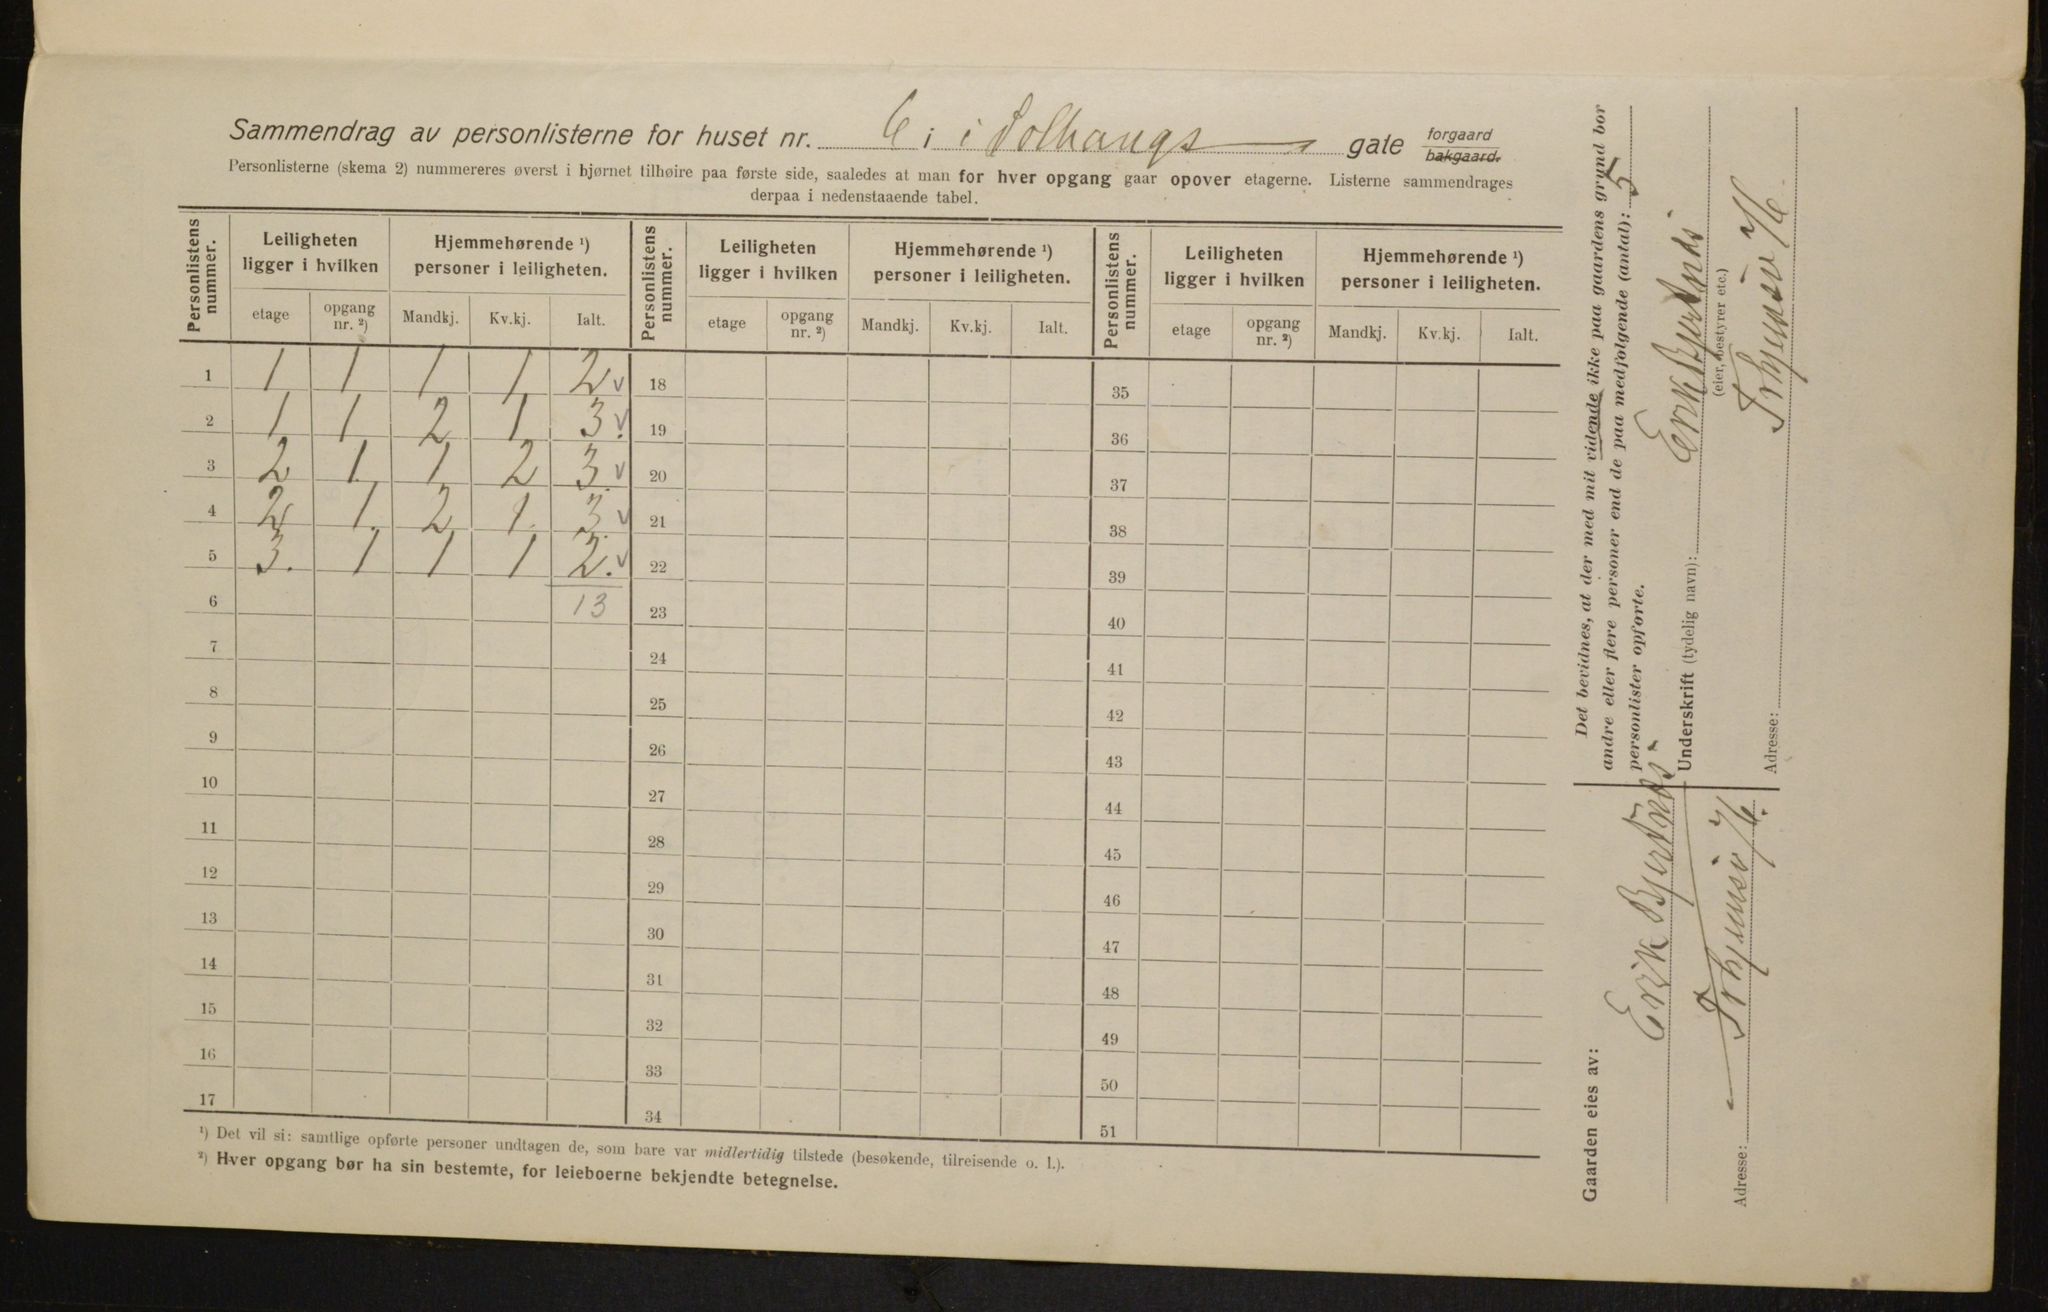 Sammendrag av personlisterne for huset nr. 6 i Solhaugs gate forgaard bakgaard.
Personlisterne (skema 2) nummereres øverst i hjørnet tilhøire paa første side, saaledes at man for hver opgang gaar opover etagerne. Listerne sammendrages
derpaa i nedenstaaende tabel.
Personlistens nummer. Leiligheten ligger i hvilken Hjemmehørende ¹) personer i leiligheten. Personlistens nummer. Leiligheten ligger i hvilken Hjemmehørende ¹) personer i leiligheten. Personlistens nummer. Leiligheten ligger i hvilken Hjemmehørende ¹) personer i leiligheten.
etage opgang nr. ²) Mandkj. Kv.kj. Ialt. etage opgang nr. ²) Mandkj. Kv.kj. Ialt. etage opgang nr. ²) Mandkj. Kv.kj. Ialt.
1 1 1 1 1 2 18 35
2 1 1 2 1 3. 19 36
3 2 1 1 2 3. 20 37
4 2 1 2 1 3. 21 38
5 3. 1 1 1 2. 22 39
6 13 23 40
7 24 41
8 25 42
9 26 43
10 27 44
11 28 45
12 29 46
13 30 47
14 31 48
15 32 49
16 33 50
17 34 51
¹) Det vil si: samtlige opførte personer undtagen de, som bare var midlertidig tilstede (besøkende, tilreisende o. l.).
²) Hver opgang bør ha sin bestemte, for leieboerne bekjendte betegnelse.
Det bevidnes, at der med mit vidende ikke paa gaardens grund bor
andre eller flere personer end de paa medfølgende (antal): 5
personlister opførte.
Underskrift (tydelig navn): Erik Bjertnæs
(eier, bestyrer etc.)
Adresse:
Gaarden eies av:
Erik Bjertnæs
Adresse: